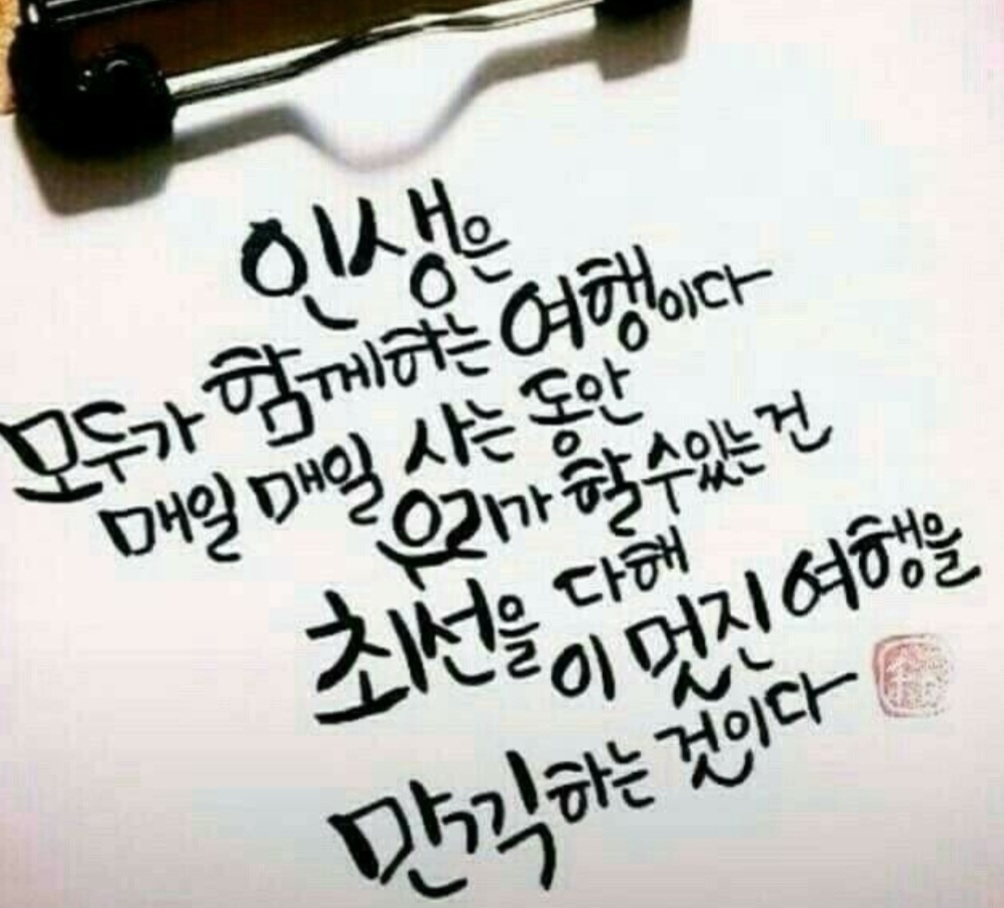 인생은
모두가 함께하는 여행이다
매일매일 사는 동안
우리가 할 수 있는 건
최선을 다해
이 멋진 여행을
만끽하는 것이다